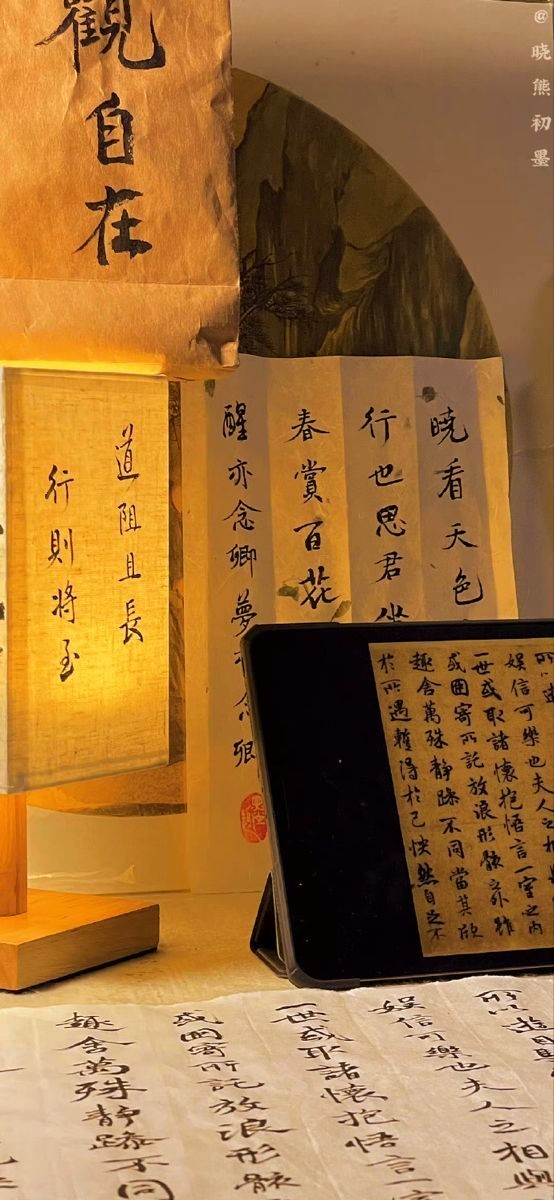 @晓熊初墨
觀自在
道阻且長
行則將至
曉看天色
行也思君坐
春賞百花
醒亦念卿夢亦念卿
所以遊
娛信可樂也夫人之相
一世或取諸懷抱悟言一室之内
或因寄所託放浪形骸之外雖
趣舍萬殊靜躁不同當其欣
於所遇蹔得於己快然自足不
所以遊目
娛信可樂也夫人之相與
一世或取諸懷抱悟言一
或因寄所託放浪形骸
趣舍萬殊靜躁不同